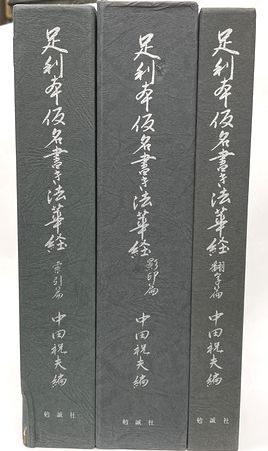 足利本仮名書き法華経 索引篇 中田祝夫編
勉誠社
足利本仮名書き法華経 影印篇 中田祝夫編
勉誠社
足利本仮名書き法華経 翻字篇 中田祝夫編
勉誠社